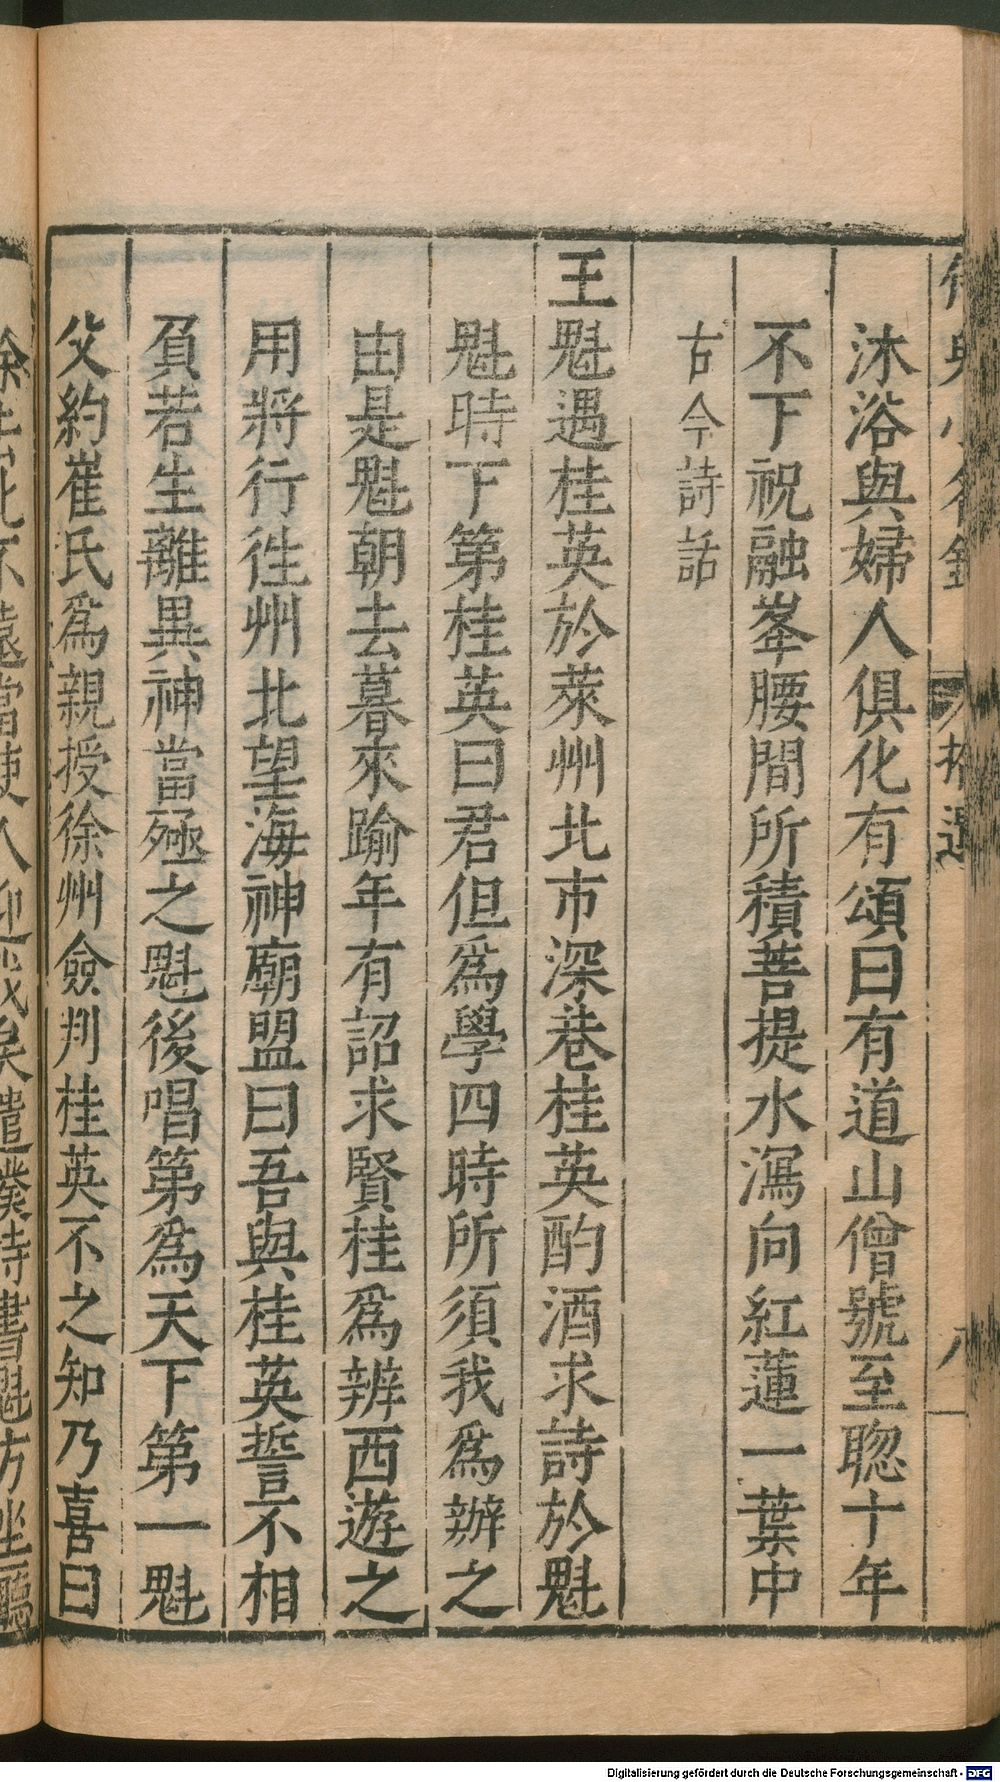 沐浴與婦人俱化有頌曰有道山僧號至聰十年
不下祝融峯腰間所積菩提水瀉向紅蓮一葉中
古今詩話
王魁遇桂英於萊州北市深巷桂英酌酒求詩於魁
魁時下第桂英曰君但爲學四時所須我爲辦之
由是魁朝去暮來踰年有詔求賢桂爲辨西遊之
用將行徃州北望海神廟盟曰吾與桂英誓不相
負若生離異神當殛之魁後唱第爲天下第一魁
父約崔氏爲親授徐州僉判桂英不之知乃喜曰
徐去此不遠當使人迎我矣遣僕持書魁方坐廳
Digitalisierung gefördert durch die Deutsche Forschungsgemeinschaft - DFG